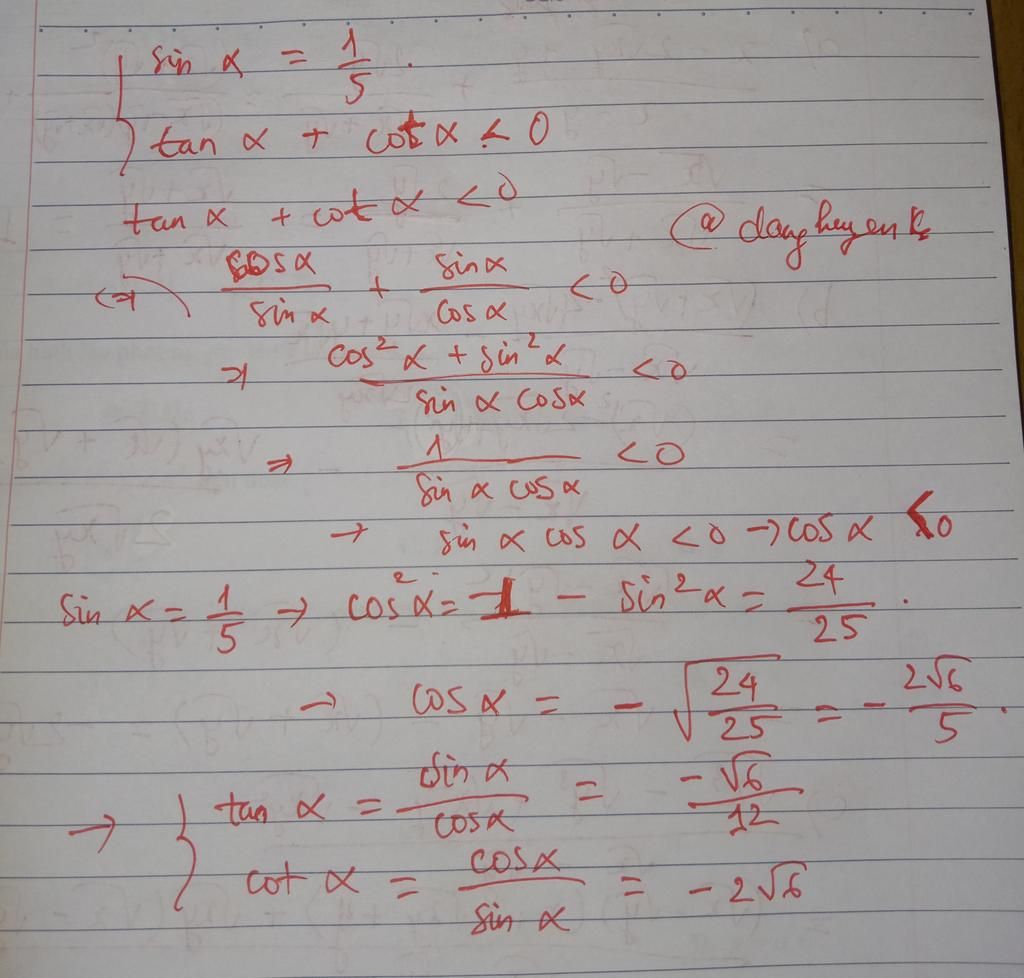 sin α = 1/5 .
tan α + cot α < 0
tan α + cot α < 0
@ danghuyenk
<=> cosα/sin α + sinα/cos α < 0
=> (cos² α + sin² α)/(sin α cosα) < 0
=> 1/(sin α cos α) < 0
→ sin α cos α < 0 → cos α < 0
sin α = 1/5 → cos² α = 1 - sin² α = 24/25 .
→ cos α = - √(24/25) = - 2√6/5 .
→ { tan α = sin α/cosα = -√6/12
cot α = cosα/sin α = - 2√6